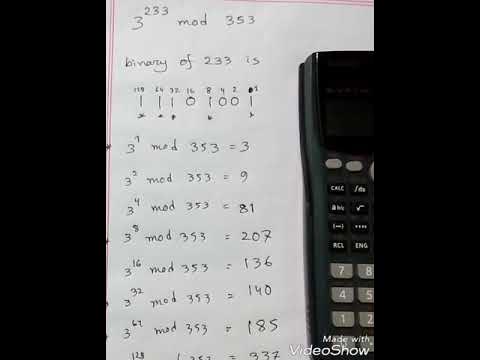 3^233 mod 353
binary of 233 is
128 64 32 16 8 4 2 1
1 1 1 0 1 0 0 1
* * * * *
* 3^1 mod 353 = 3
3^2 mod 353 = 9
3^4 mod 353 = 81
* 3^8 mod 353 = 207
3^16 mod 353 = 136
* 3^32 mod 353 = 140
3^64 mod 353 = 185
353 = 337
CALC ∫dx
ab/c √
RCL ENG
7 8
4 5
1 2
0
Made with
VideoShow